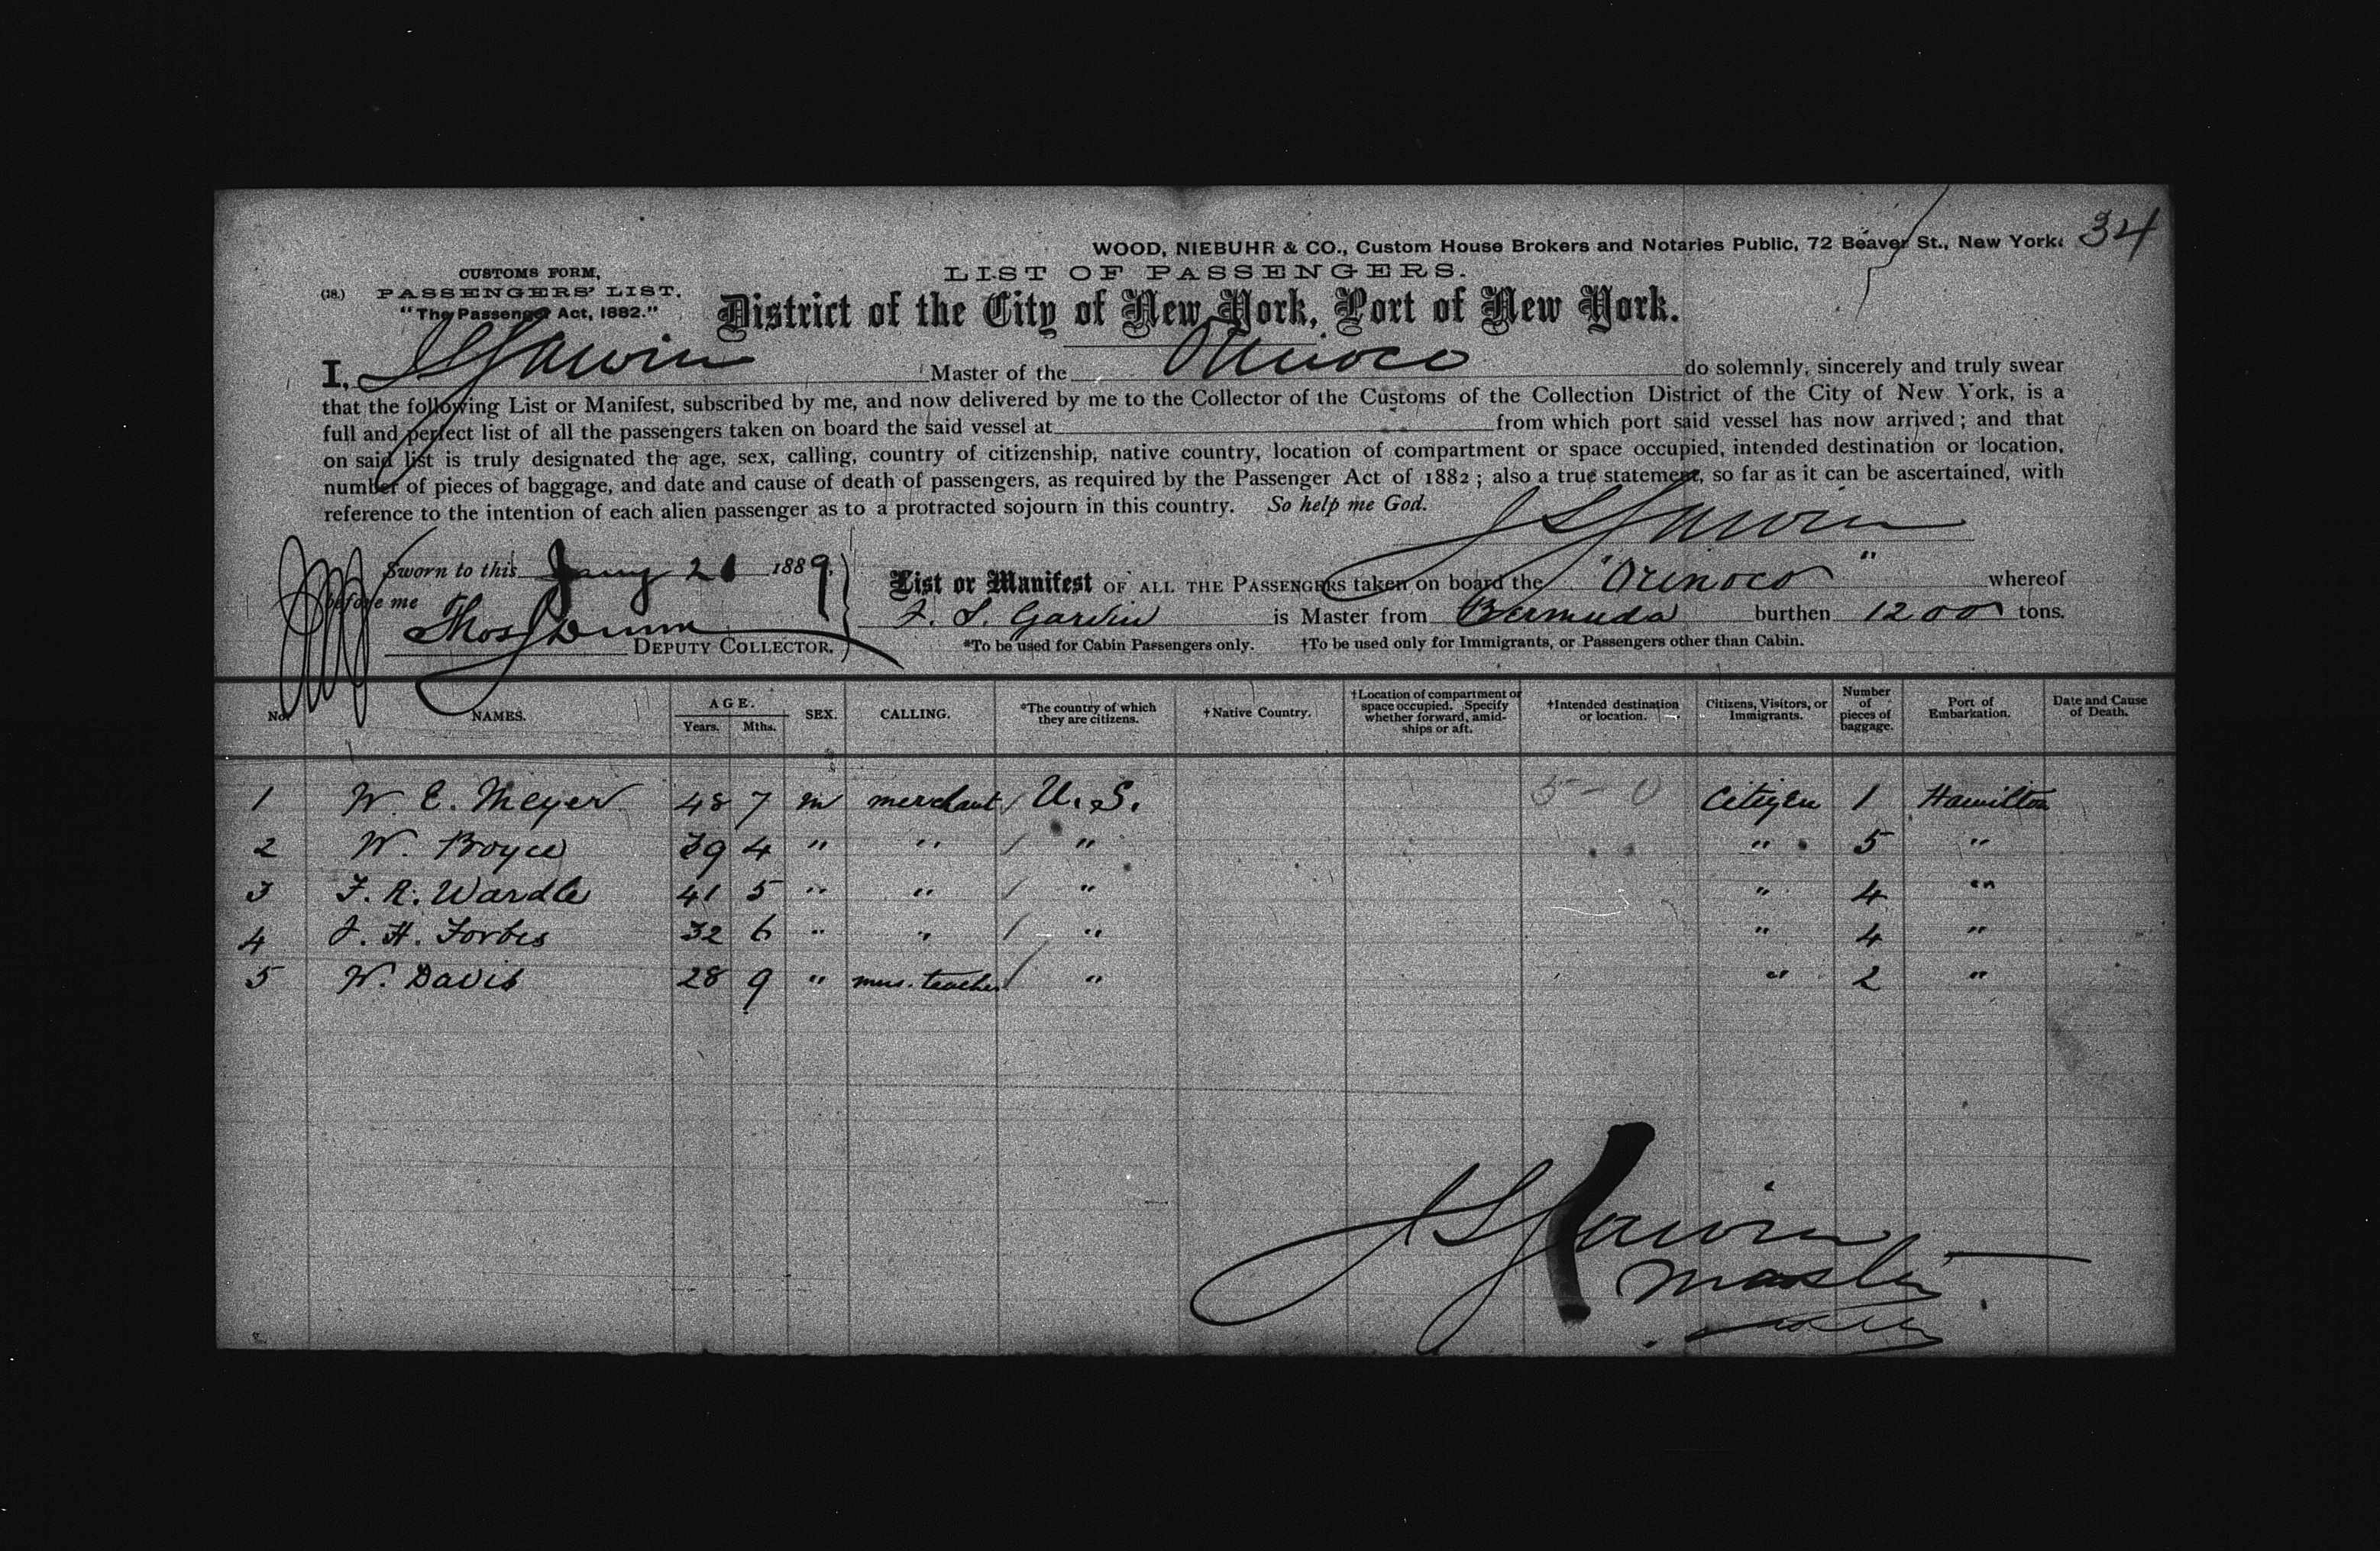 34
WOOD, NIEBUHR & CO., Custom House Brokers and Notaries Public, 72 Beaver St., New York.
CUSTOMS FORM,
(18.) PASSENGERS' LIST.
"The Passenger Act, 1882."
LIST OF PASSENGERS.
District of the City of New York, Port of New York.
I, J S Garvin Master of the Orinoco do solemnly, sincerely and truly swear
that the following List or Manifest, subscribed by me, and now delivered by me to the Collector of the Customs of the Collection District of the City of New York, is a
full and perfect list of all the passengers taken on board the said vessel at from which port said vessel has now arrived; and that
on said list is truly designated the age, sex, calling, country of citizenship, native country, location of compartment or space occupied, intended destination or location,
number of pieces of baggage, and date and cause of death of passengers, as required by the Passenger Act of 1882; also a true statement, so far as it can be ascertained, with
reference to the intention of each alien passenger as to a protracted sojourn in this country. So help me God.
J S Garvin
Sworn to this Jany 21 1889,
before me
Thos Dunn
DEPUTY COLLECTOR.
List or Manifest OF ALL THE PASSENGERS taken on board the "Orinoco" whereof
J. S. Garvin is Master from Bermuda burthen 1200 tons.
*To be used for Cabin Passengers only. †To be used only for Immigrants, or Passengers other than Cabin.
No. NAMES. AGE. Years. Mths. SEX. CALLING. *The country of which they are citizens. †Native Country. †Location of compartment or space occupied. Specify whether forward, amidships or aft. †Intended destination or location. Citizens, Visitors, or Immigrants. Number of pieces of baggage. Port of Embarkation. Date and Cause of Death.
1 W. E. Meyer 48 7 m merchant / U.S. 5-0 Citizen 1 Hamilton
2 W. Boyce 39 4 " " / " " 5 "
3 F. R. Wardle 41 5 " " / " " 4 "
4 J. H. Forbes 32 6 " " / " " 4 "
5 W. Davis 28 9 " mus. teacher / " " 2 "
J S Garvin
Master